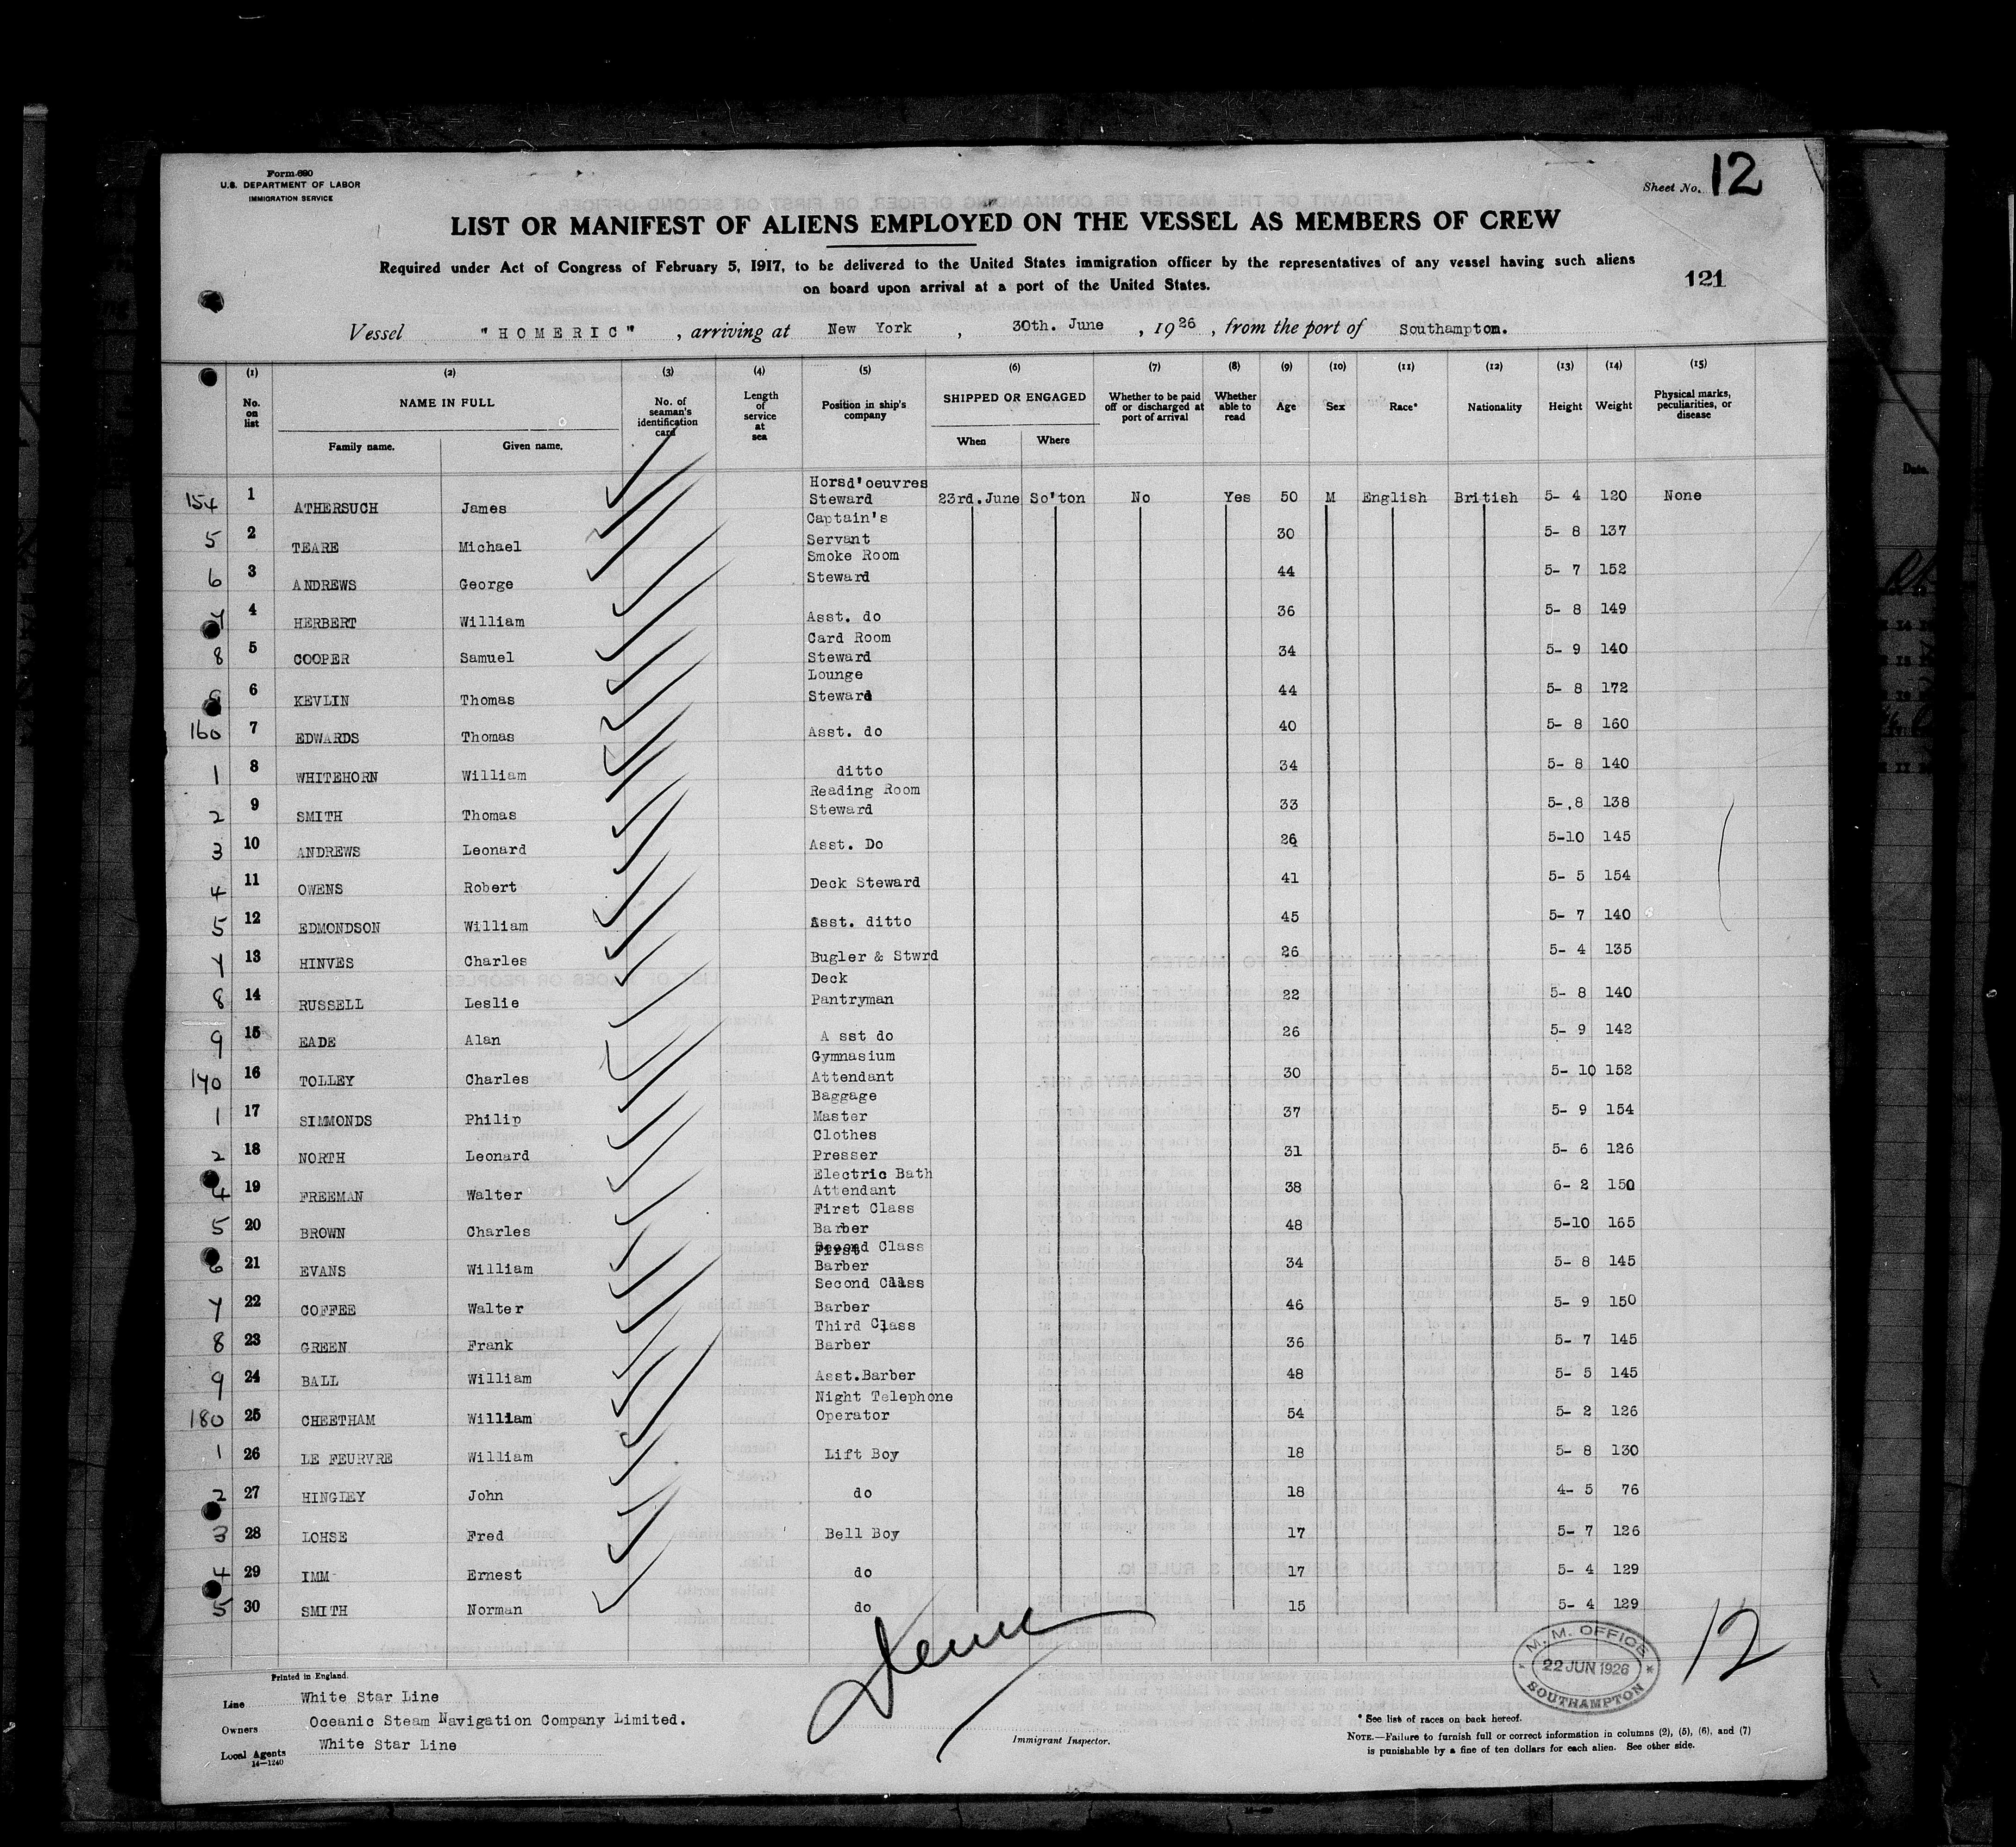 Form 680
U.S. DEPARTMENT OF LABOR
IMMIGRATION SERVICE
Sheet No. 12
LIST OR MANIFEST OF ALIENS EMPLOYED ON THE VESSEL AS MEMBERS OF CREW
Required under Act of Congress of February 5, 1917, to be delivered to the United States immigration officer by the representatives of any vessel having such aliens
on board upon arrival at a port of the United States.
121
Vessel "HOMERIC", arriving at New York, 30th. June, 1926, from the port of Southampton.
(1) (2) (3) (4) (5) (6) (7) (8) (9) (10) (11) (12) (13) (14) (15)
No. on list NAME IN FULL Family name. Given name. No. of seaman's identification card Length of service at sea Position in ship's company SHIPPED OR ENGAGED When Where Whether to be paid off or discharged at port of arrival Whether able to read Age Sex Race* Nationality Height Weight Physical marks, peculiarities, or disease
154 1 ATHERSUCH James Horsd'oeuvres Steward 23rd.June So'ton No Yes 50 M English British 5- 4 120 None
5 2 TEARE Michael Captain's Servant 30 5- 8 137
6 3 ANDREWS George Smoke Room Steward 44 5- 7 152
4 HERBERT William Asst. do 36 5- 8 149
8 5 COOPER Samuel Card Room Steward 34 5- 9 140
6 KEVLIN Thomas Lounge Steward 44 5- 8 172
160 7 EDWARDS Thomas Asst. do 40 5- 8 160
1 8 WHITEHORN William ditto 34 5- 8 140
2 9 SMITH Thomas Reading Room Steward 33 5-.8 138
3 10 ANDREWS Leonard Asst. Do 26 5-10 145
4 11 OWENS Robert Deck Steward 41 5- 5 154
5 12 EDMONDSON William Asst. ditto 45 5- 7 140
7 13 HINVES Charles Bugler & Stwrd 26 5- 4 135
8 14 RUSSELL Leslie Deck Pantryman 22 5- 8 140
9 15 EADE Alan A sst do 26 5- 9 142
170 16 TOLLEY Charles Gymnasium Attendant 30 5- 10 152
1 17 SIMMONDS Philip Baggage Master 37 5- 9 154
2 18 NORTH Leonard Clothes Presser 31 5- 6 126
4 19 FREEMAN Walter Electric Bath Attendant 38 6- 2 150
5 20 BROWN Charles First Class Barber 48 5-10 165
6 21 EVANS William First Class Barber 34 5- 8 145
7 22 COFFEE Walter Second Class Barber 46 5- 9 150
8 23 GREEN Frank Third Class Barber 36 5- 7 145
9 24 BALL William Asst.Barber 48 5- 5 145
180 25 CHEETHAM William Night Telephone Operator 54 5- 2 126
1 26 LE FEURVRE William Lift Boy 18 5- 8 130
2 27 HINGLEY John do 18 4- 5 76
3 28 LOHSE Fred Bell Boy 17 5- 7 126
4 29 IMM Ernest do 17 5- 4 129
5 30 SMITH Norman do 15 5- 4 129
M. M. OFFICE
22 JUN 1926
SOUTHAMPTON
12
Printed in England.
Line White Star Line
Owners Oceanic Steam Navigation Company Limited.
Local Agents White Star Line
14—1240
Immigrant Inspector.
* See list of races on back hereof.
NOTE.—Failure to furnish full or correct information in columns (2), (5), (6), and (7)
is punishable by a fine of ten dollars for each alien. See other side.